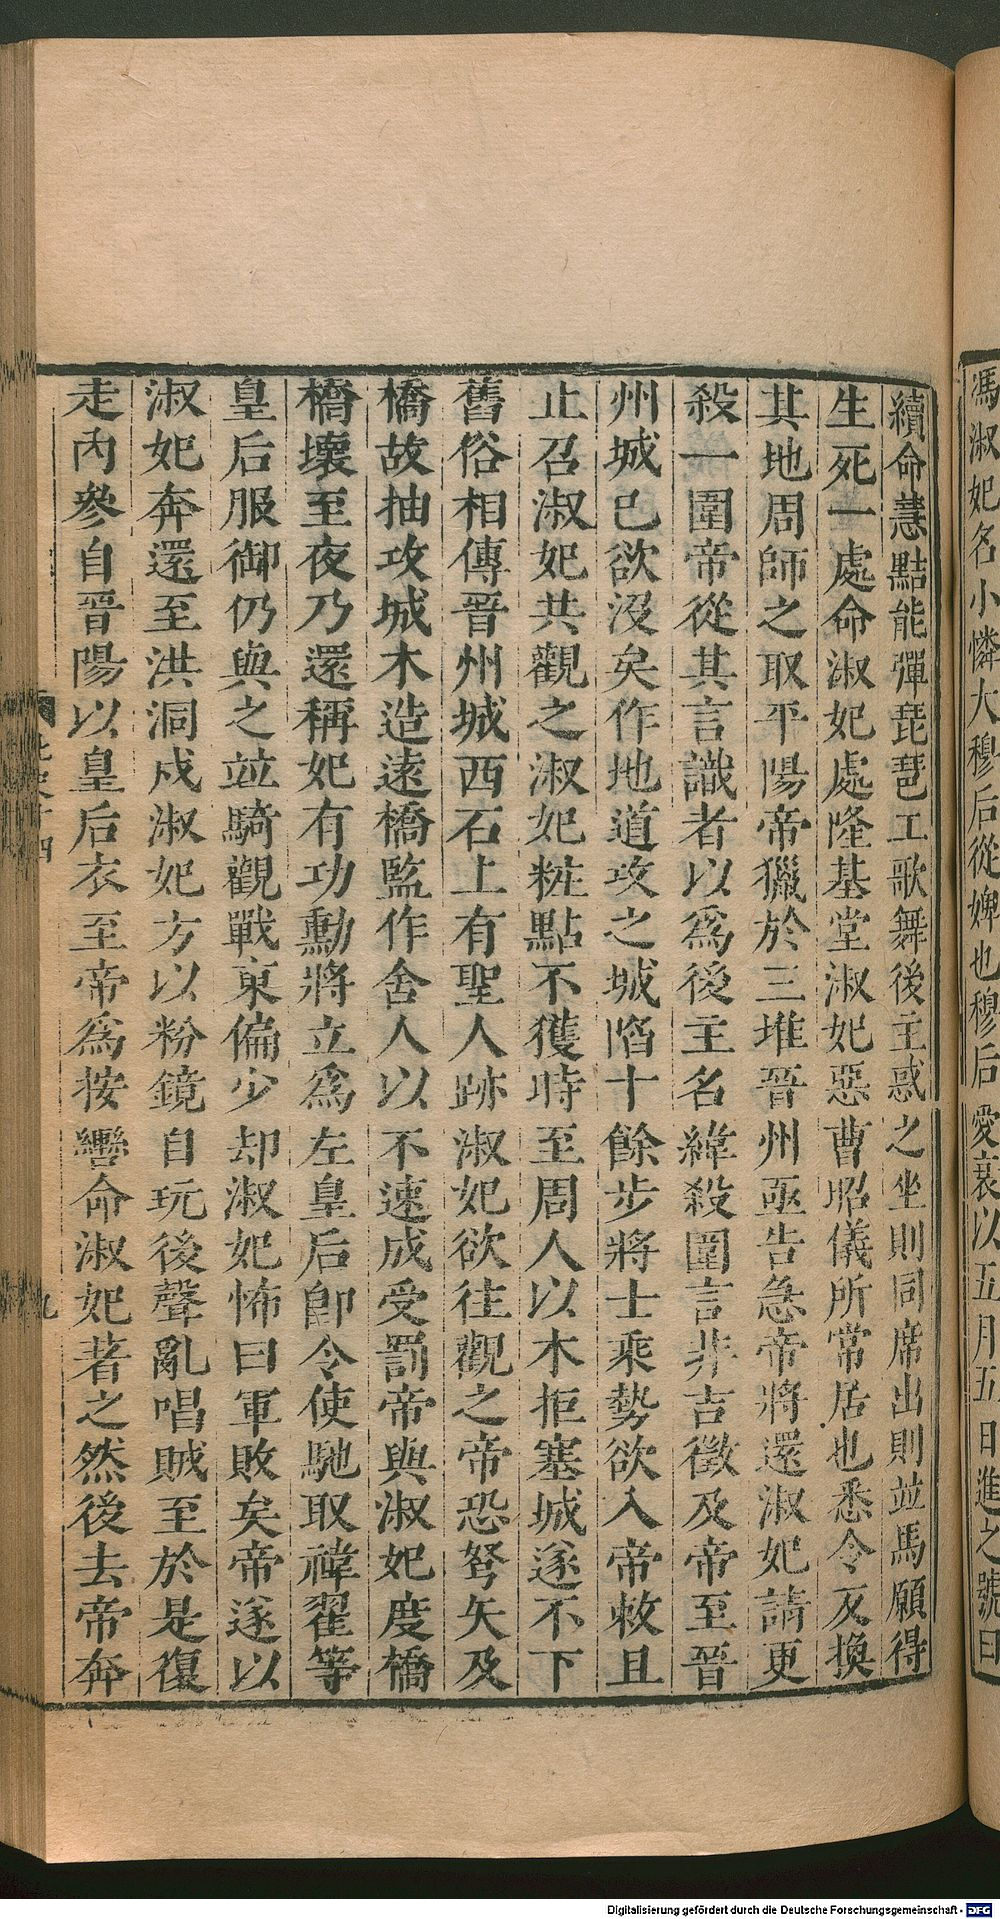 馮淑妃名小憐大穆后從婢也穆后愛衰以五月五日進之號曰
續命慧黠能彈琵琶工歌舞後主惑之坐則同席出則並馬願得
生死一處命淑妃處隆基堂淑妃惡曹昭儀所常居也悉令反換
其地周師之取平陽帝獵於三堆晉州亟告急帝將還淑妃請更
殺一圍帝從其言識者以爲後主名緯殺圍言非吉徵及帝至晉
州城已欲沒矣作地道攻之城陷十餘步將士乘勢欲入帝敕且
止召淑妃共觀之淑妃粧點不獲時至周人以木拒塞城遂不下
舊俗相傳晉州城西石上有聖人跡淑妃欲往觀之帝恐弩矢及
橋故抽攻城木造遠橋監作舍人以不速成受罰帝與淑妃度橋
橋壞至夜乃還稱妃有功勳將立爲左皇后卽令使馳取褘翟等
皇后服御仍與之並騎觀戰東偏少却淑妃怖曰軍敗矣帝遂以
淑妃奔還至洪洞戍淑妃方以粉鏡自玩後聲亂唱賊至於是復
走內參自晉陽以皇后衣至帝爲按轡命淑妃著之然後去帝奔
北史十四
九
Digitalisierung gefördert durch die Deutsche Forschungsgemeinschaft - DFG